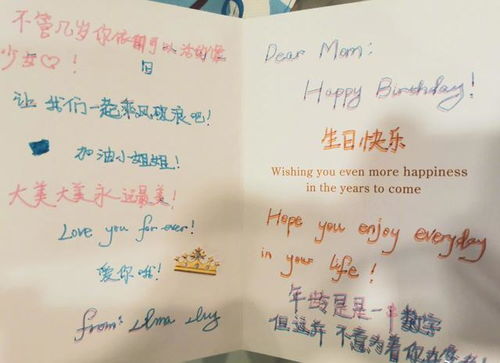 不管几岁你依旧可以活的像
少女♡!
让我们一起乘风破浪吧!
加油小姐姐!
大美大美永远最美!
Love you for ever!
爱你哦!
from:
Dear Mom:
Happy Birthday!
生日快乐
Wishing you even more happiness
in the years to come
Hope you enjoy everyday
in your life!
年龄是是一串数字
但这并不意味着你